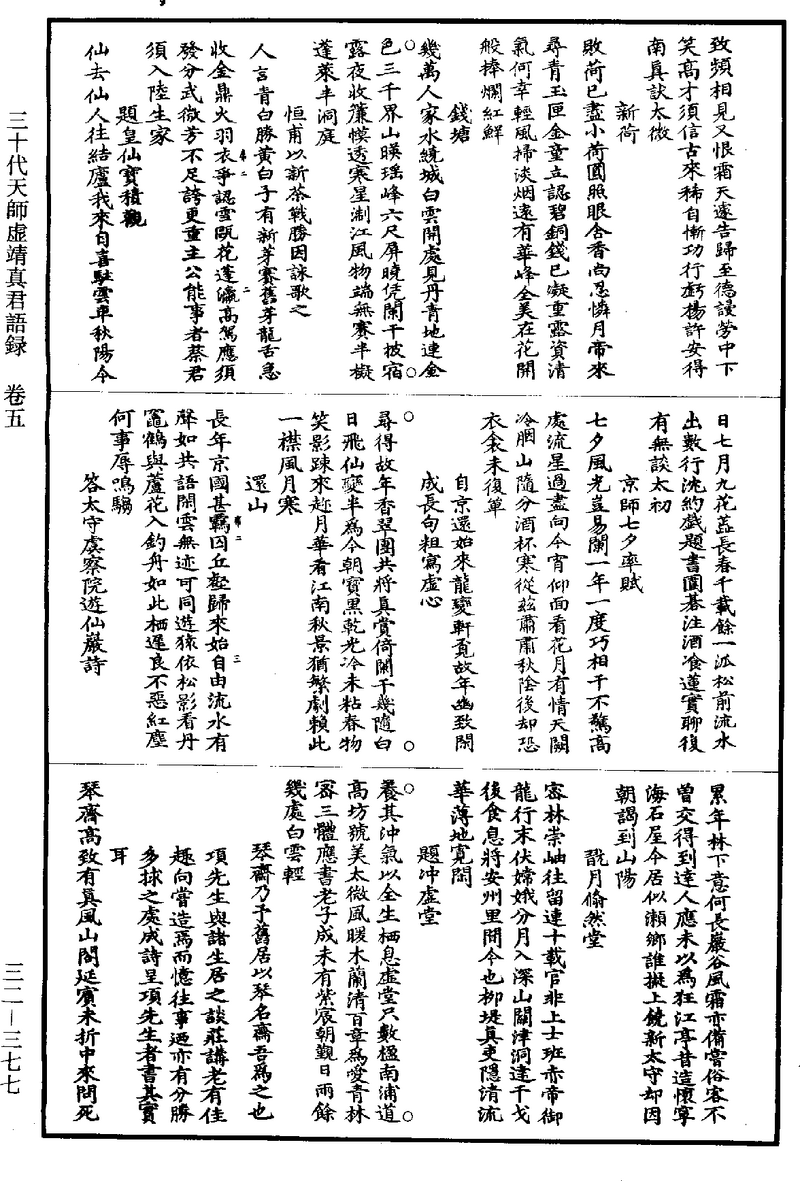 致頻相見又恨霜天遠告歸至德謾勞中下
笑高才須信古來稀自慚功行虧揚許安得
南眞談太微
新荷
敗荷已盡小荷圓照眼含香尚忍憐月帝來
尋青玉匣金童立認碧銅錢已凝重露資清
氣何幸輕風掃淡烟遠有華峰全美在花開
般捧爛紅鮮
錢塘
幾萬人家水繞城白雲開處見丹青地連金
色三千界山暎瑶峰六尺屏曉凭闌干披宿
露夜收簾幙透寒星淛江風物端無賽半擬
蓬萊半洞庭
恒甫以新茶戰勝因詠歌之
人言青白勝黄白子有新芽賽舊芽龍舌急
收金鼎火羽衣爭認雪甌花蓬瀛高駕應須
發分武微芳不足誇更重主公能事者蔡君
須入陸生家
題皇仙寶積觀
仙去仙人往結廬我來自喜駐雲車秋陽今
日七月九花蓋長春千載餘一泒松前流水
出數行沈約戲題書圍碁注酒飡蓮實聊復
有無談太初
京師七夕率賦
七夕風光豈易闌一年一度巧相干不驚高
處流星過盡向今宵仰面看花月有情天闕
冷胭山隨分酒杯寒從兹蕭肅秋陰後却恐
衣衾未復單
自京還始來龍變軒覔故年幽致閑
成長句粗寫虛心
尋得故年香翠團共將眞賞倚闌干幾隨白
日飛仙變半爲今朝寶黒乾光冷未粘春物
笑影踈來趂月華看江南秋景猶繁劇賴此
一襟風月寒
還山
長年京國甚羈囚丘壑歸來始自由流水有
聲如共語閑雲無迹可同遊猿依松影看丹
竈鶴與蘆花入釣舟如此栖遲良不惡紅塵
何事辱鳴騶
答太守虞察院遊仙巖詩
累年林下意何長巖谷風霜亦備嘗俗客不
曽交得到達人應未以爲狂江亭昔造懷寧
海石屋今居似瀨鄉誰擬上饒新太守却因
朝謁到山陽
翫月翛然堂
宻林崇岫往留連十載官非上士班赤帝御
龍行末伏嫦娥分月入深山關津洞達干戈
後食息將安州里間今也柳堤真吏隱清流
華薄地寛閑
題冲虛堂
養其沖氣以全生栖息虛堂只數楹南浦道
高坊號美太微風暖木蘭清百章爲愛青林
宻三體應書老子成未有紫宸朝覲日雨餘
幾處白雲輕
琴齋乃予舊居以琴名齋吾爲之也
項先生與諸生居之談莊講老有佳
趣向嘗造焉而憶往事廼亦有分勝
多捄之處成詩呈項先生者書其實
耳
琴齋高致有眞風山閣延賓未折中來問死
三十代天師虛靖真君語録　卷五
三二—三七七